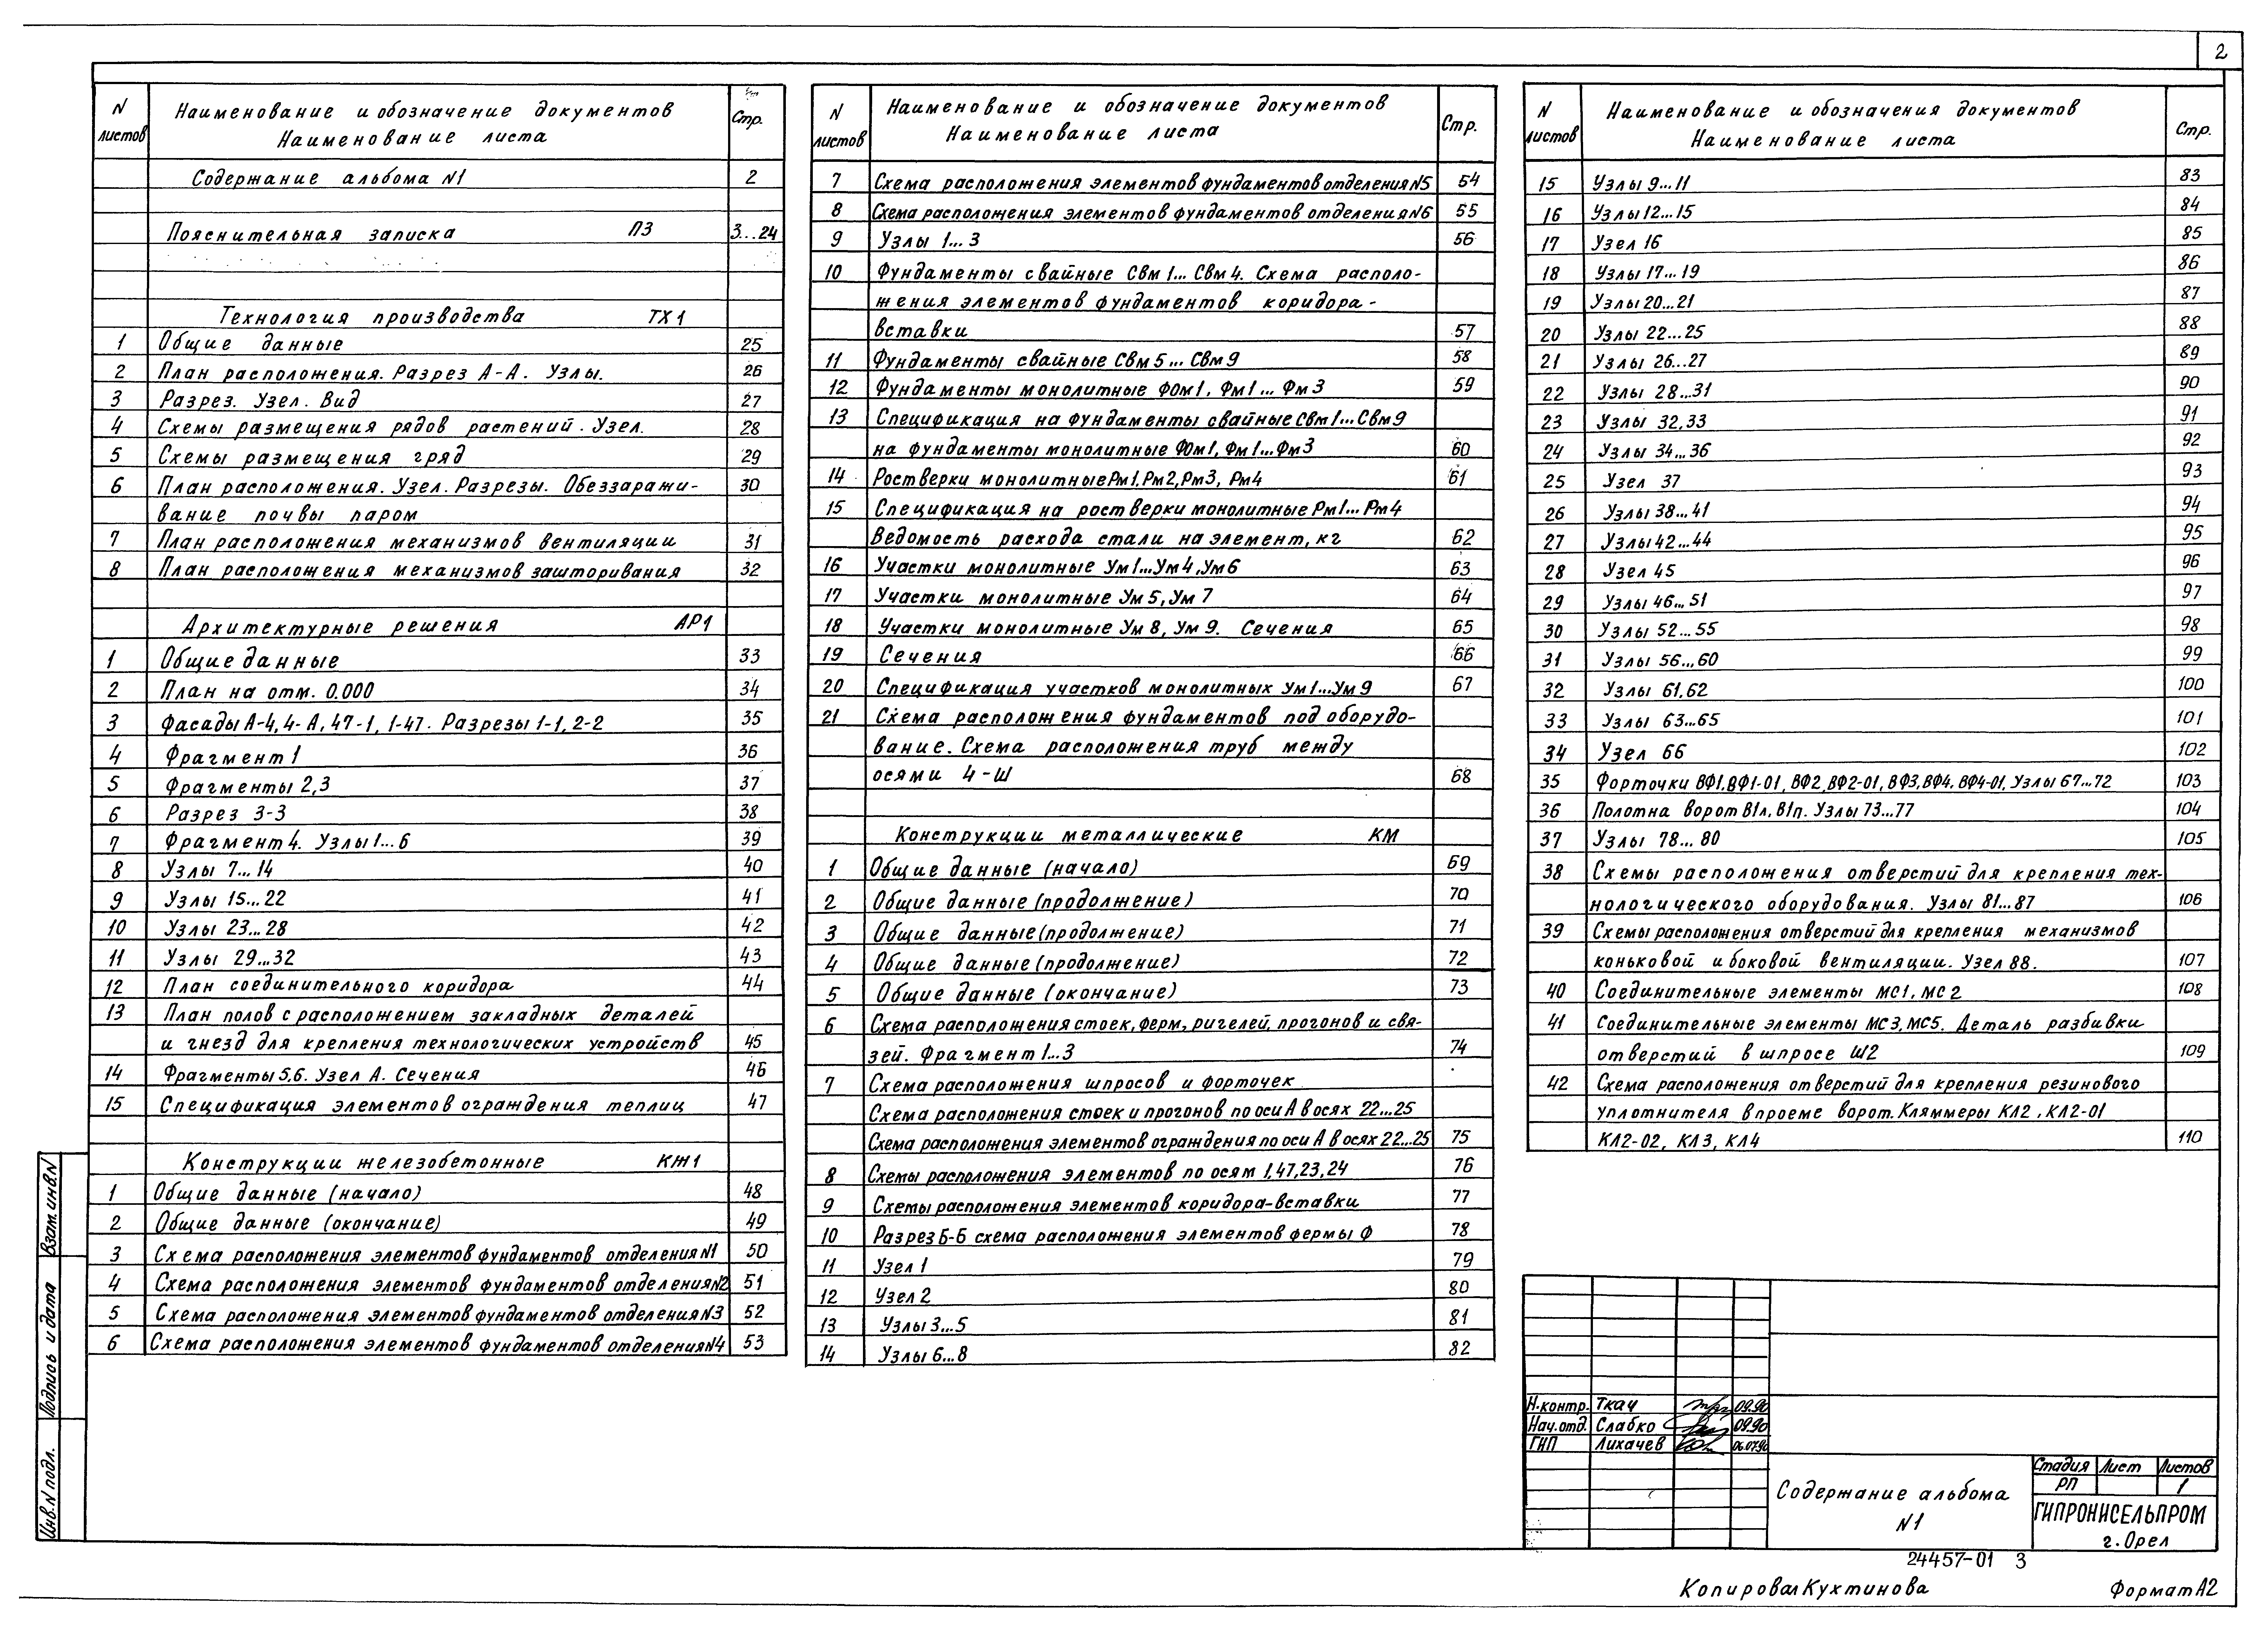 2
N листов Наименование и обозначение документов Наименование листа Стр.
Содержание альбома N1 2
Пояснительная записка ПЗ 3...24
Технология производства ТХ1
1 Общие данные 25
2 План расположения. Разрез А-А. Узлы. 26
3 Разрез. Узел. Вид 27
4 Схемы размещения рядов растений. Узел. 28
5 Схемы размещения гряд 29
6 План расположения. Узел. Разрезы. Обеззаражи- 30
вание почвы паром
7 План расположения механизмов вентиляции 31
8 План расположения механизмов зашторивания 32
Архитектурные решения АР1
1 Общие данные 33
2 План на отм. 0.000 34
3 Фасады А-4, 4-А, 47-1, 1-47. Разрезы 1-1, 2-2 35
4 Фрагмент 1 36
5 Фрагменты 2,3 37
6 Разрез 3-3 38
7 Фрагмент 4. Узлы 1...6 39
8 Узлы 7...14 40
9 Узлы 15...22 41
10 Узлы 23...28 42
11 Узлы 29...32 43
12 План соединительного коридора 44
13 План полов с расположением закладных деталей
и гнезд для крепления технологических устройств 45
14 Фрагменты 5,6. Узел А. Сечения 46
15 Спецификация элементов ограждения теплиц 47
Конструкции железобетонные КЖ1
1 Общие данные (начало) 48
2 Общие данные (окончание) 49
3 Схема расположения элементов фундаментов отделения N1 50
4 Схема расположения элементов фундаментов отделения N2 51
5 Схема расположения элементов фундаментов отделения N3 52
6 Схема расположения элементов фундаментов отделения N4 53
N листов Наименование и обозначение документов Наименование листа Стр.
7 Схема расположения элементов фундаментов отделения N5 54
8 Схема расположения элементов фундаментов отделения N6 55
9 Узлы 1...3 56
10 Фундаменты свайные Свм1...Свм4. Схема располо-
жения элементов фундаментов коридора-
вставки 57
11 Фундаменты свайные Свм5...Свм9 58
12 Фундаменты монолитные ФОм1, Фм1...Фм3 59
13 Спецификация на фундаменты свайные Свм1...Свм9
на фундаменты монолитные ФОм1, Фм1...Фм3 60
14 Ростверки монолитные Рм1, Рм2, Рм3, Рм4 61
15 Спецификация на ростверки монолитные Рм1...Рм4
Ведомость расхода стали на элемент, кг 62
16 Участки монолитные Ум1...Ум4, Ум6 63
17 Участки монолитные Ум5, Ум7 64
18 Участки монолитные Ум8, Ум9. Сечения 65
19 Сечения 66
20 Спецификация участков монолитных Ум1...Ум9 67
21 Схема расположения фундаментов под оборудо-
вание. Схема расположения труб между
осями 4-Ш 68
Конструкции металлические КМ
1 Общие данные (начало) 69
2 Общие данные (продолжение) 70
3 Общие данные (продолжение) 71
4 Общие данные (продолжение) 72
5 Общие данные (окончание) 73
6 Схема расположения стоек, ферм, ригелей, прогонов и свя-
зей. Фрагмент 1...3 74
7 Схема расположения шпросов и форточек
Схема расположения стоек и прогонов по оси А в осях 22...25
Схема расположения элементов ограждения по оси А в осях 22...25 75
8 Схемы расположения элементов по осям 1,47,23,24 76
9 Схемы расположения элементов коридора-вставки 77
10 Разрез Б-Б схема расположения элементов фермы Ф 78
11 Узел 1 79
12 Узел 2 80
13 Узлы 3...5 81
14 Узлы 6...8 82
N листов Наименование и обозначения документов Наименование листа Стр.
15 Узлы 9...11 83
16 Узлы 12...15 84
17 Узел 16 85
18 Узлы 17...19 86
19 Узлы 20...21 87
20 Узлы 22...25 88
21 Узлы 26...27 89
22 Узлы 28...31 90
23 Узлы 32,33 91
24 Узлы 34...36 92
25 Узел 37 93
26 Узлы 38...41 94
27 Узлы 42...44 95
28 Узел 45 96
29 Узлы 46...51 97
30 Узлы 52...55 98
31 Узлы 56...60 99
32 Узлы 61,62 100
33 Узлы 63...65 101
34 Узел 66 102
35 Форточки ВФ1, ВФ1-01, ВФ2, ВФ2-01, ВФ3, ВФ4, ВФ4-01, Узлы 67...72 103
36 Полотна ворот В1л, В1п. Узлы 73...77 104
37 Узлы 78...80 105
38 Схемы расположения отверстий для крепления тех-
нологического оборудования. Узлы 81...87 106
39 Схемы расположения отверстий для крепления механизмов
коньковой и боковой вентиляции. Узел 88. 107
40 Соединительные элементы МС1, МС2 108
41 Соединительные элементы МС3, МС5. Деталь разбивки
отверстий в шпросе Ш2 109
42 Схема расположения отверстий для крепления резинового
уплотнителя в проеме ворот. Кляммеры КЛ2, КЛ2-01
КЛ2-02, КЛ3, КЛ4 110
Взам. инв. N
Подпись и дата
Инв. N подл.
Н.контр. Ткач 09.90
Нач.отд. Слабко 09.90
ГИП Лихачев 06.07.90
Содержание альбома
N1
Стадия Лист Листов
РП 1
ГИПРОНИСЕЛЬПРОМ
г. Орел
24457-01 3
Копировал Кухтинова Формат А2